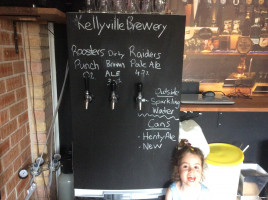 Kellyville Brewery
Roosters Dirty Raiders
Punch Brown Pale Ale
ALE
Outside
Sparkling
Water
Cans
- Henty Ale
- New